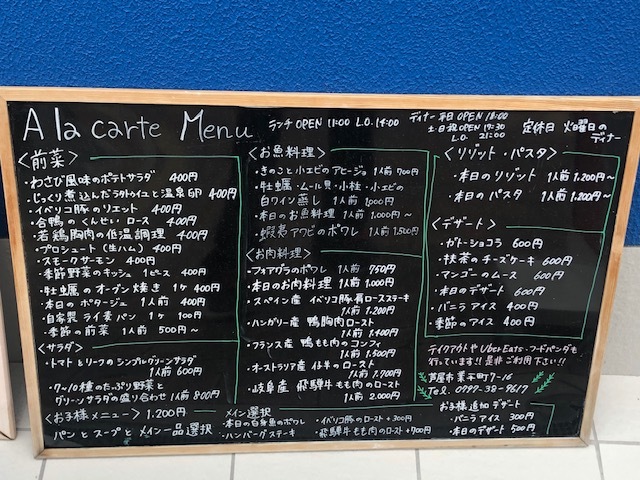 A la carte Menu
ランチ OPEN 11:00 L.O. 14:00
ディナー 平日 OPEN 18:00
土日祝 OPEN 17:30
L.O. 21:00
定休日 火曜日の
ディナー
〈前菜〉
・わさび風味のポテトサラダ 400円
・じっくり煮込んだラタトゥイユと温泉卵 400円
・イベリコ豚のリエット 400円
・合鴨のくんせい ロース 400円
・若鶏胸肉の低温調理 400円
・プロシュート(生ハム) 400円
・スモークサーモン 400円
・季節野菜のキッシュ 1ピース 400円
・牡蠣のオーブン焼き 1ヶ 400円
・本日のポタージュ 1人前 400円
・自家製 ライ麦パン 1ヶ 100円
・季節の前菜 1人前 500円〜
〈サラダ〉
・トマトとリーフのシンプルグリーンサラダ
1人前 600円
・7〜10種のたっぷり野菜と
グリーンサラダの盛り合わせ 1人前 800円
〈お魚料理〉
・きのこと小エビのアヒージョ 1人前 700円
・牡蠣・ムール貝・小柱・小エビの
白ワイン蒸し 1人前 1,000円
・本日のお魚料理 1人前 1,000円〜
・蝦夷アワビのポワレ 1人前 1,500円
〈お肉料理〉
・フォアグラのポワレ 1人前 750円
・本日のお肉料理 1人前 1,000円
・スペイン産 イベリコ豚肩ロースステーキ
1人前 1,200円
・ハンガリー産 鴨胸肉ロースト
1人前 1,400円
・フランス産 鴨もも肉のコンフィ
1人前 1,500円
・オーストラリア産 仔羊のロースト
1人前 1,700円
・岐阜産 飛騨牛もも肉のロースト
1人前 2,000円
〈リゾット・パスタ〉
・本日のリゾット 1人前 1,200円〜
・本日のパスタ 1人前 1,200円〜
〈デザート〉
・ガトーショコラ 600円
・抹茶のチーズケーキ 600円
・マンゴーのムース 600円
・本日のデザート 600円
・バニラアイス 400円
・季節のアイス 400円
テイクアウトや Uber Eats・フードパンダも
行ってます!! 是非ご利用下さい!!
芦屋市業平町7-16
Tel. 0797-38-9617
〈お子様メニュー〉 1,200円
パンとスープとメイン一品選択
メイン選択
・本日の白身魚のポワレ
・ハンバーグステーキ
・イベリコ豚のロースト +300円
・飛騨牛もも肉のロースト +700円
お子様追加デザート
・バニラアイス 300円
・本日のデザート 500円